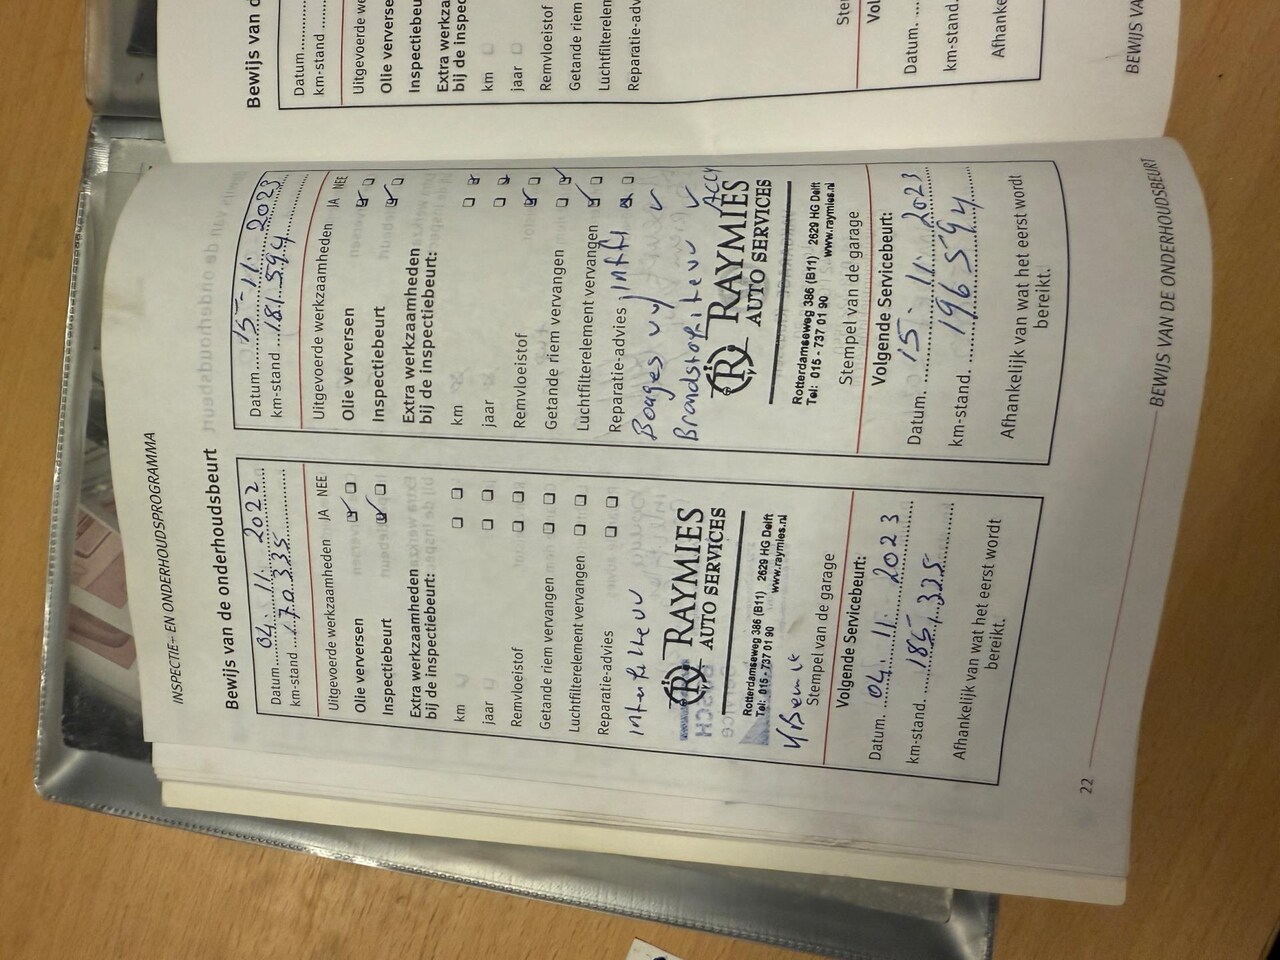 INSPECTIE- EN ONDERHOUDSPROGRAMMA
Bewijs van de onderhoudsbeurt
Datum 04. 11. 2022
km-stand 170.335
Uitgevoerde werkzaamheden JA NEE
Olie verversen
Inspectiebeurt
Extra werkzaamheden
bij de inspectiebeurt:
km
jaar
Remvloeistof
Getande riem vervangen
Luchtfilterelement vervangen
Reparatie-advies
RAYMIES
AUTO SERVICES
Rotterdamseweg 386 (B11) 2629 HG Delft
Tel: 015 - 737 01 90 www.raymies.nl
Stempel van de garage
Volgende Servicebeurt:
Datum. 04. 11. 2023
km-stand. 185.335
Afhankelijk van wat het eerst wordt
bereikt.
22
Datum 15-11. 2023
km-stand 181.594
Uitgevoerde werkzaamheden JA NEE
Olie verversen
Inspectiebeurt
Extra werkzaamheden
bij de inspectiebeurt:
km
jaar
Remvloeistof
Getande riem vervangen
Luchtfilterelement vervangen
Reparatie-advies
Bouges
ACCY
RAYMIES
AUTO SERVICES
Rotterdamseweg 386 (B11) 2629 HG Delft
Tel: 015 - 737 01 90 www.raymies.nl
Stempel van de garage
Volgende Servicebeurt:
Datum. 15. 11. 2023
km-stand. 196594
Afhankelijk van wat het eerst wordt
bereikt.
BEWIJS VAN DE ONDERHOUDSBEURT
Bewijs van d
Datum
km-stand
Uitgevoerde we
Olie verversen
Inspectiebeu
Extra werkza
bij de inspec
km
jaar
Remvloeistof
Getande riem
Luchtfilterelen
Reparatie-adv
Ste
Vol
Datum.
km-stand.
Afhanke
BEWIJS VA